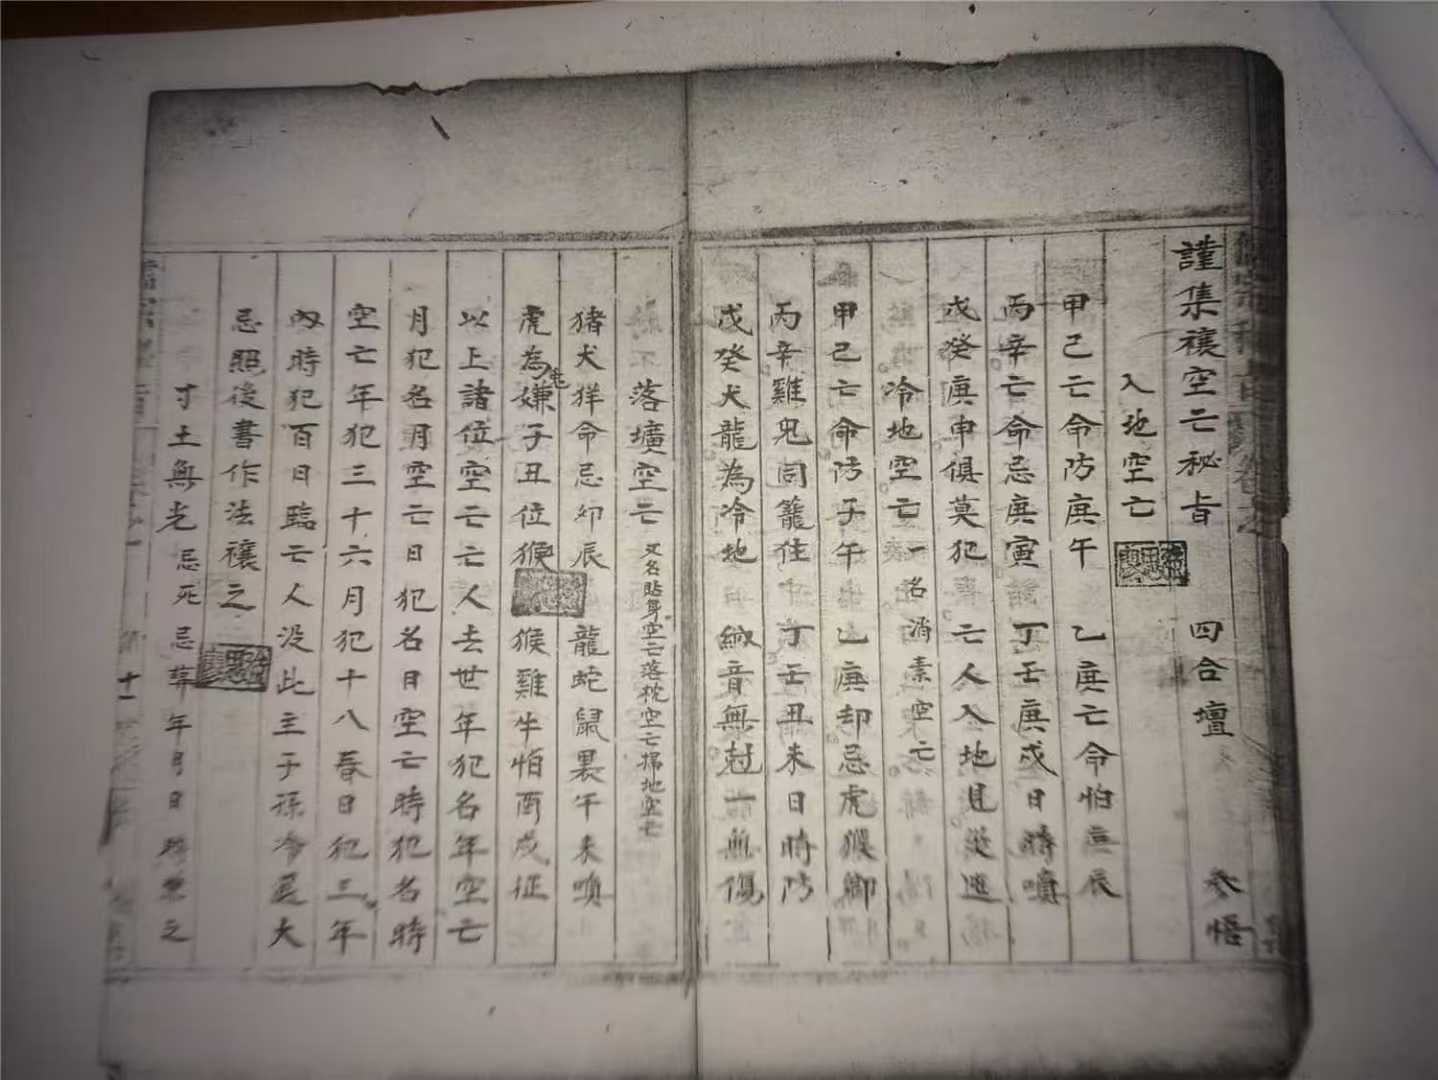 謹集禳空亡秘旨 四合壇 參悟
入地空亡
甲己亡命防庚午 乙庚亡命怕庚辰
丙辛亡命忌庚寅 丁壬庚戌日時嗔
戊癸庚申俱莫犯 亡人入地見災迍
冷地空亡 一名消索空亡
甲己亡命防子午 乙庚却忌虎猴鄉
丙辛雞兔同籠住 丁壬丑未日時防
戊癸犬龍為冷地 納音無尅一無傷
落壙空亡 又名貼身空亡落枕空亡掃地空亡
猪犬羊命忌卯辰 龍蛇鼠裏午未嗔
虎兔為嫌子丑位 猴雞牛怕酉戌征
以上諸位空亡亡人去世年犯名年空亡
月犯名月空亡日犯名日空亡時犯名時
空亡年犯三十六月犯十八春日犯三年
內時犯百日臨亡人沒此主子孫冷退大
忌照後書作法禳之
寸土無光 忌死忌葬年月日時
十一